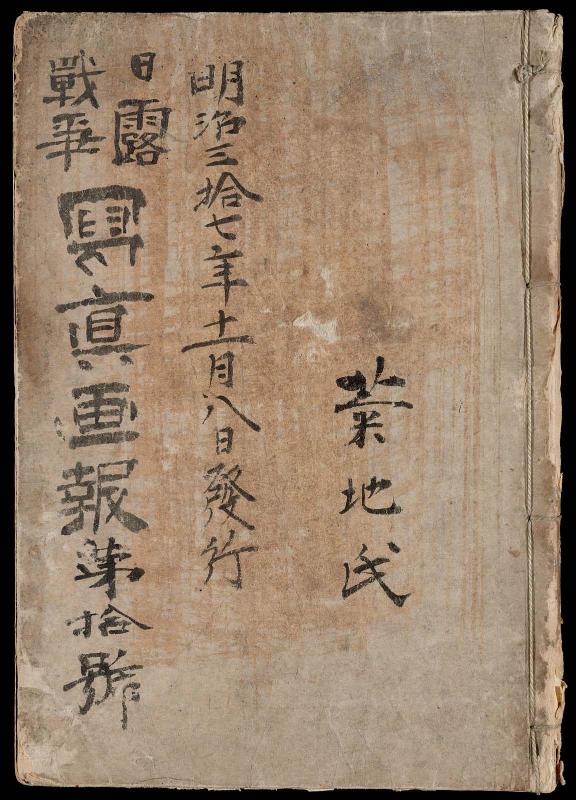 菊地氏
明治三拾七年十一月八日發行
日露
戰争
寫真画報第拾號